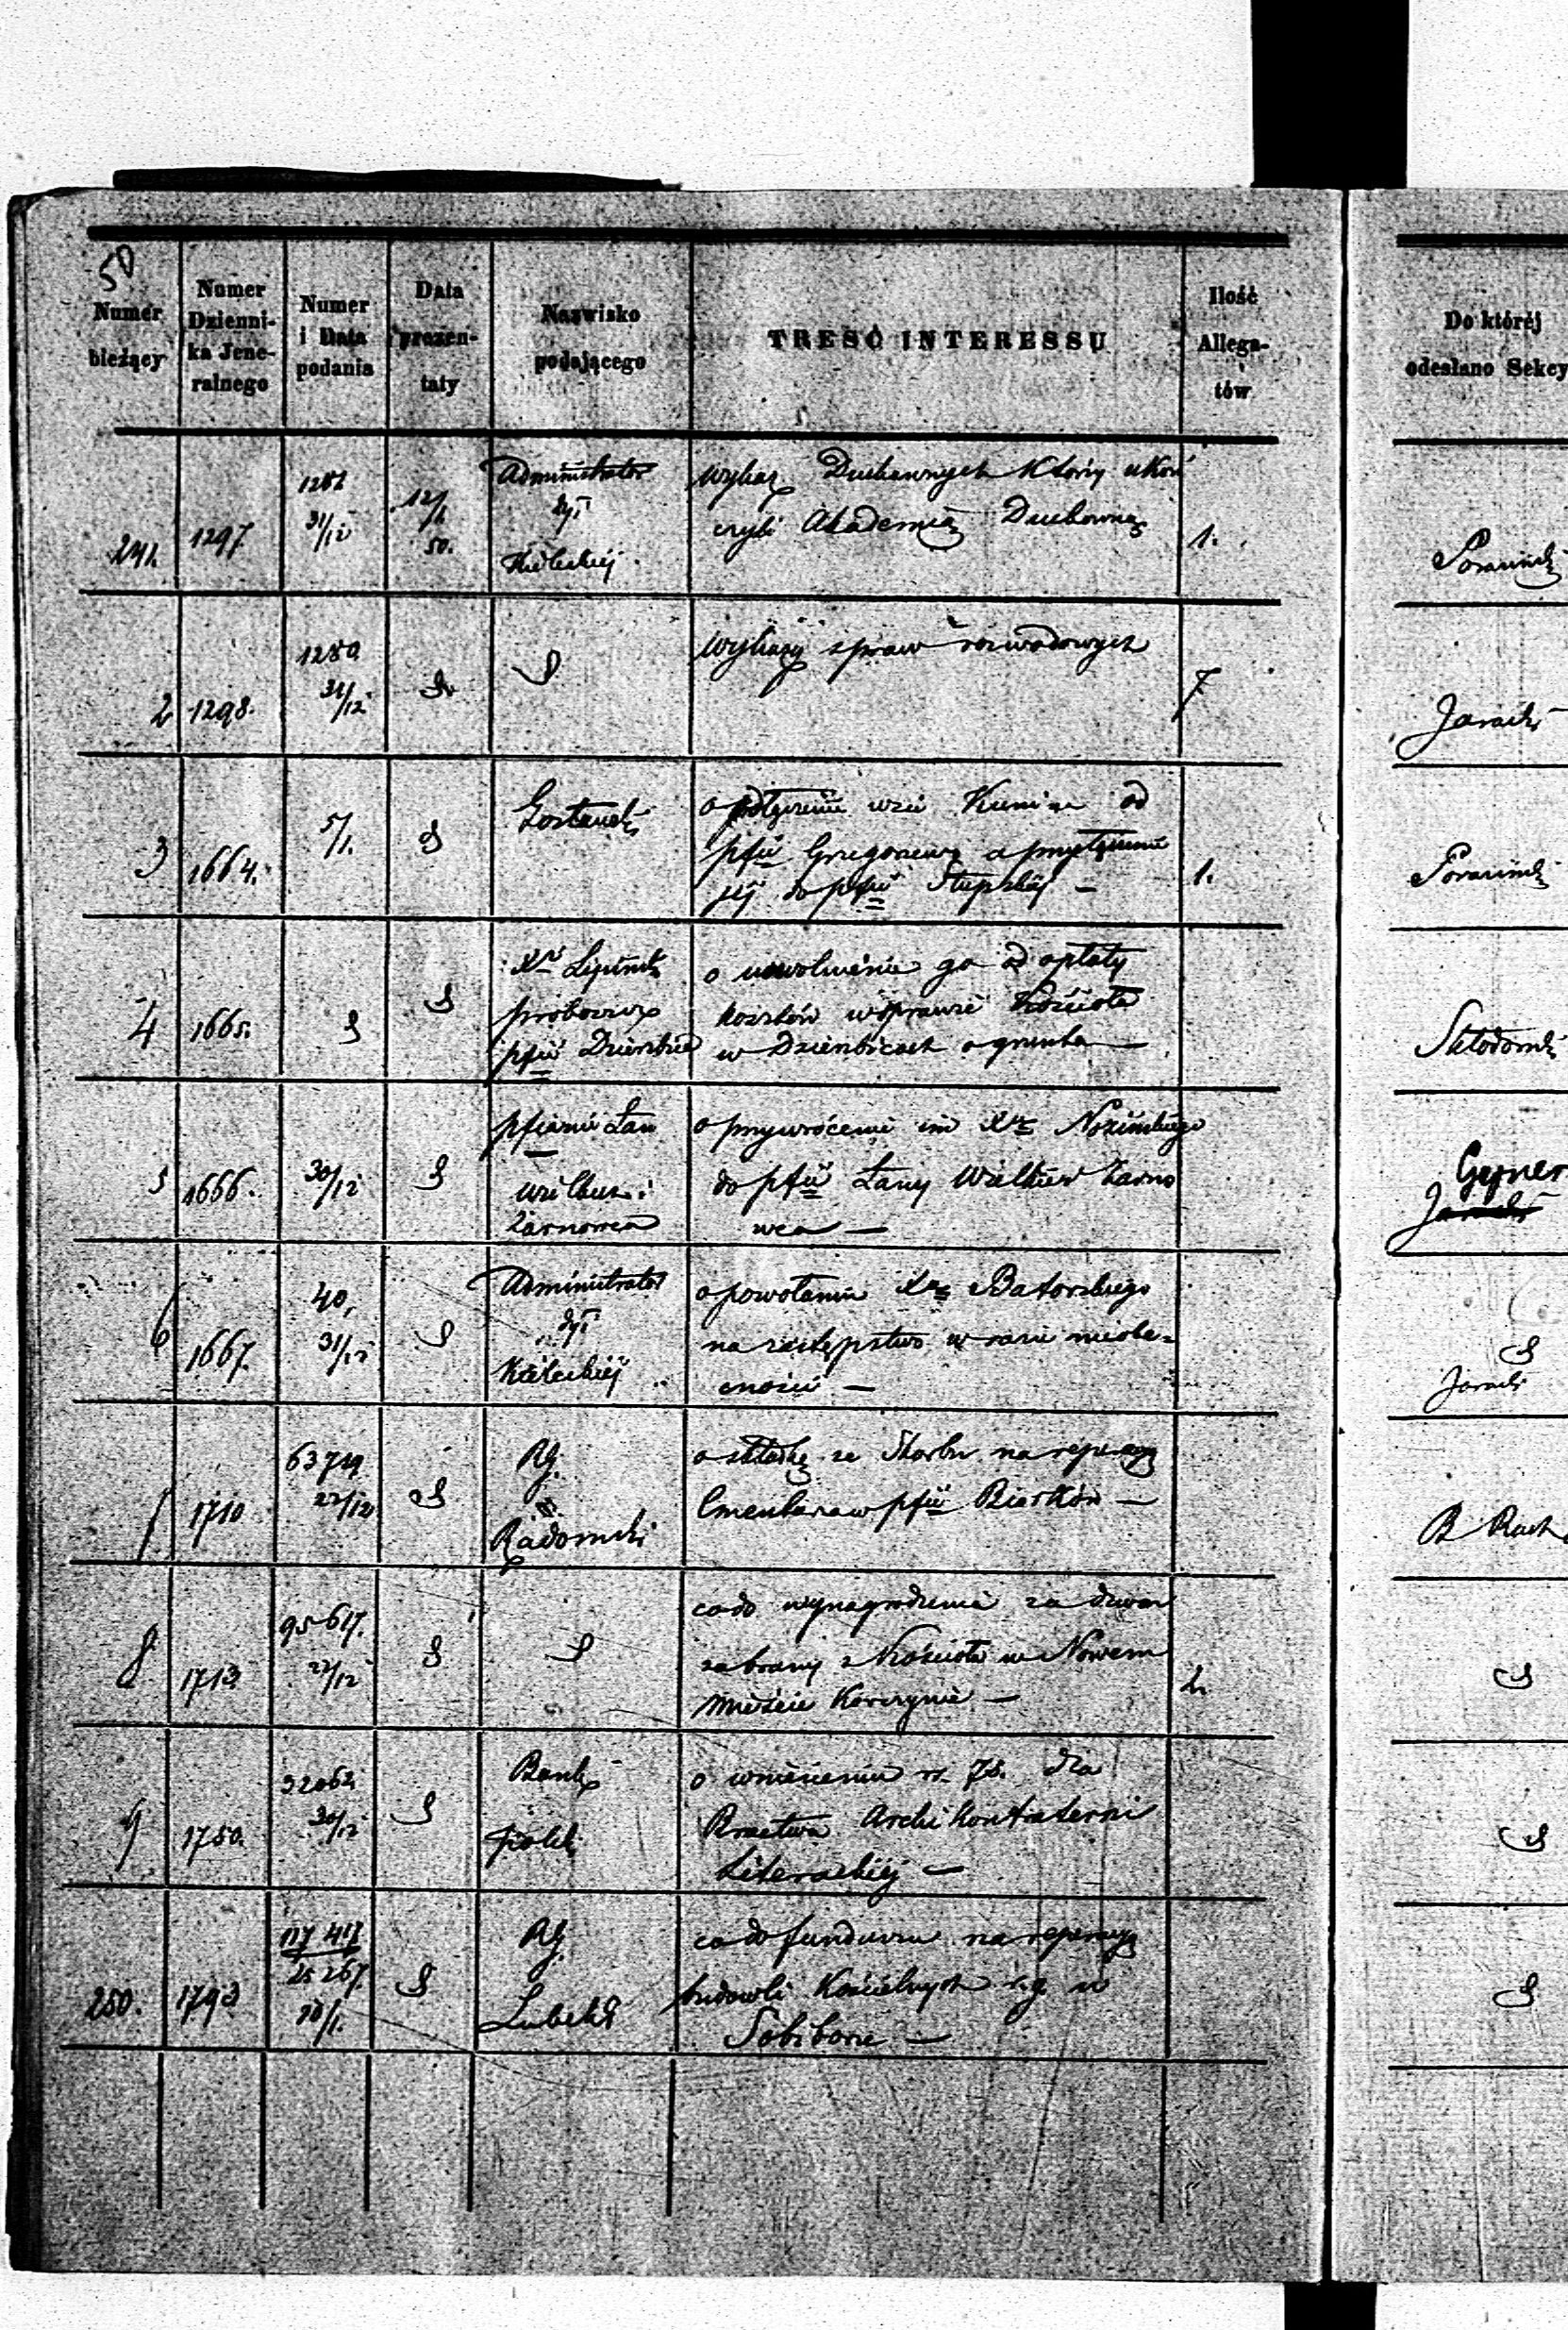 50
Numer bieżący
Numer Dzienni-ka Jene-ralnego
Numer i Data podania
Data prezen-taty
Nazwisko podającego
TREŚĆ INTERESSU
Ilość Allega-tów
Do któréj odesłano Sekcy
241. 1297 31/12 12/1 50.
Administrator
dyi
Kieleckiéj
Wykaz Duchownych którzy ukoń
czyli Akademią Duchowną
1.
2 1298. 31/12
Wykazy spraw rozwodowych
7
Jarach
3 1664. 5/1.
o odłączenie wsi Kunina od
pfii Grzegorzew a przyłączenie
jéj do pfii Słupskiéj —
1.
4 1665.
Xs Lipiński
proboszcz
pfii Dzierzbice
o uwolnienie go od opłaty
kosztów w sprawie Kościoła
w Dzierzbicach o grunta —
5 1666. 30/12
pfianie Łan
Wielkich i
Żarnowca
o przywrócenie im Xa Nozińskiego
do pfii Łany Wielkie Żarno
wca —
Gepner
6 1667. 40, 31/12
Administrator
dyi
Kieleckiéj
o powołanie Xa Batorskiego
na zastępstwo w razie nieobe-
cności —
Jarach
7 1710 63719 22/12
RG.
Radomski
o składkę ze Skarbu na reperacyą
Cmentarza w pfii Biórków —
8 1713 95617. 22/12
co do wynagrodzenia za dzwon
zabrany z Kościoła w Nowem
Mieście Korczynie —
2.
9 1750. 32062 30/12
Bank
polski
o wniesieniu rs. 75. dla
Bractwa Archikonfraterni
Literackiéj —
250. 1793 117 417
25 267.
10/1.
RG.
Lubelski
co do funduszu na reperacyą
budowli Kościelnych r.g. w
Sobiborze —